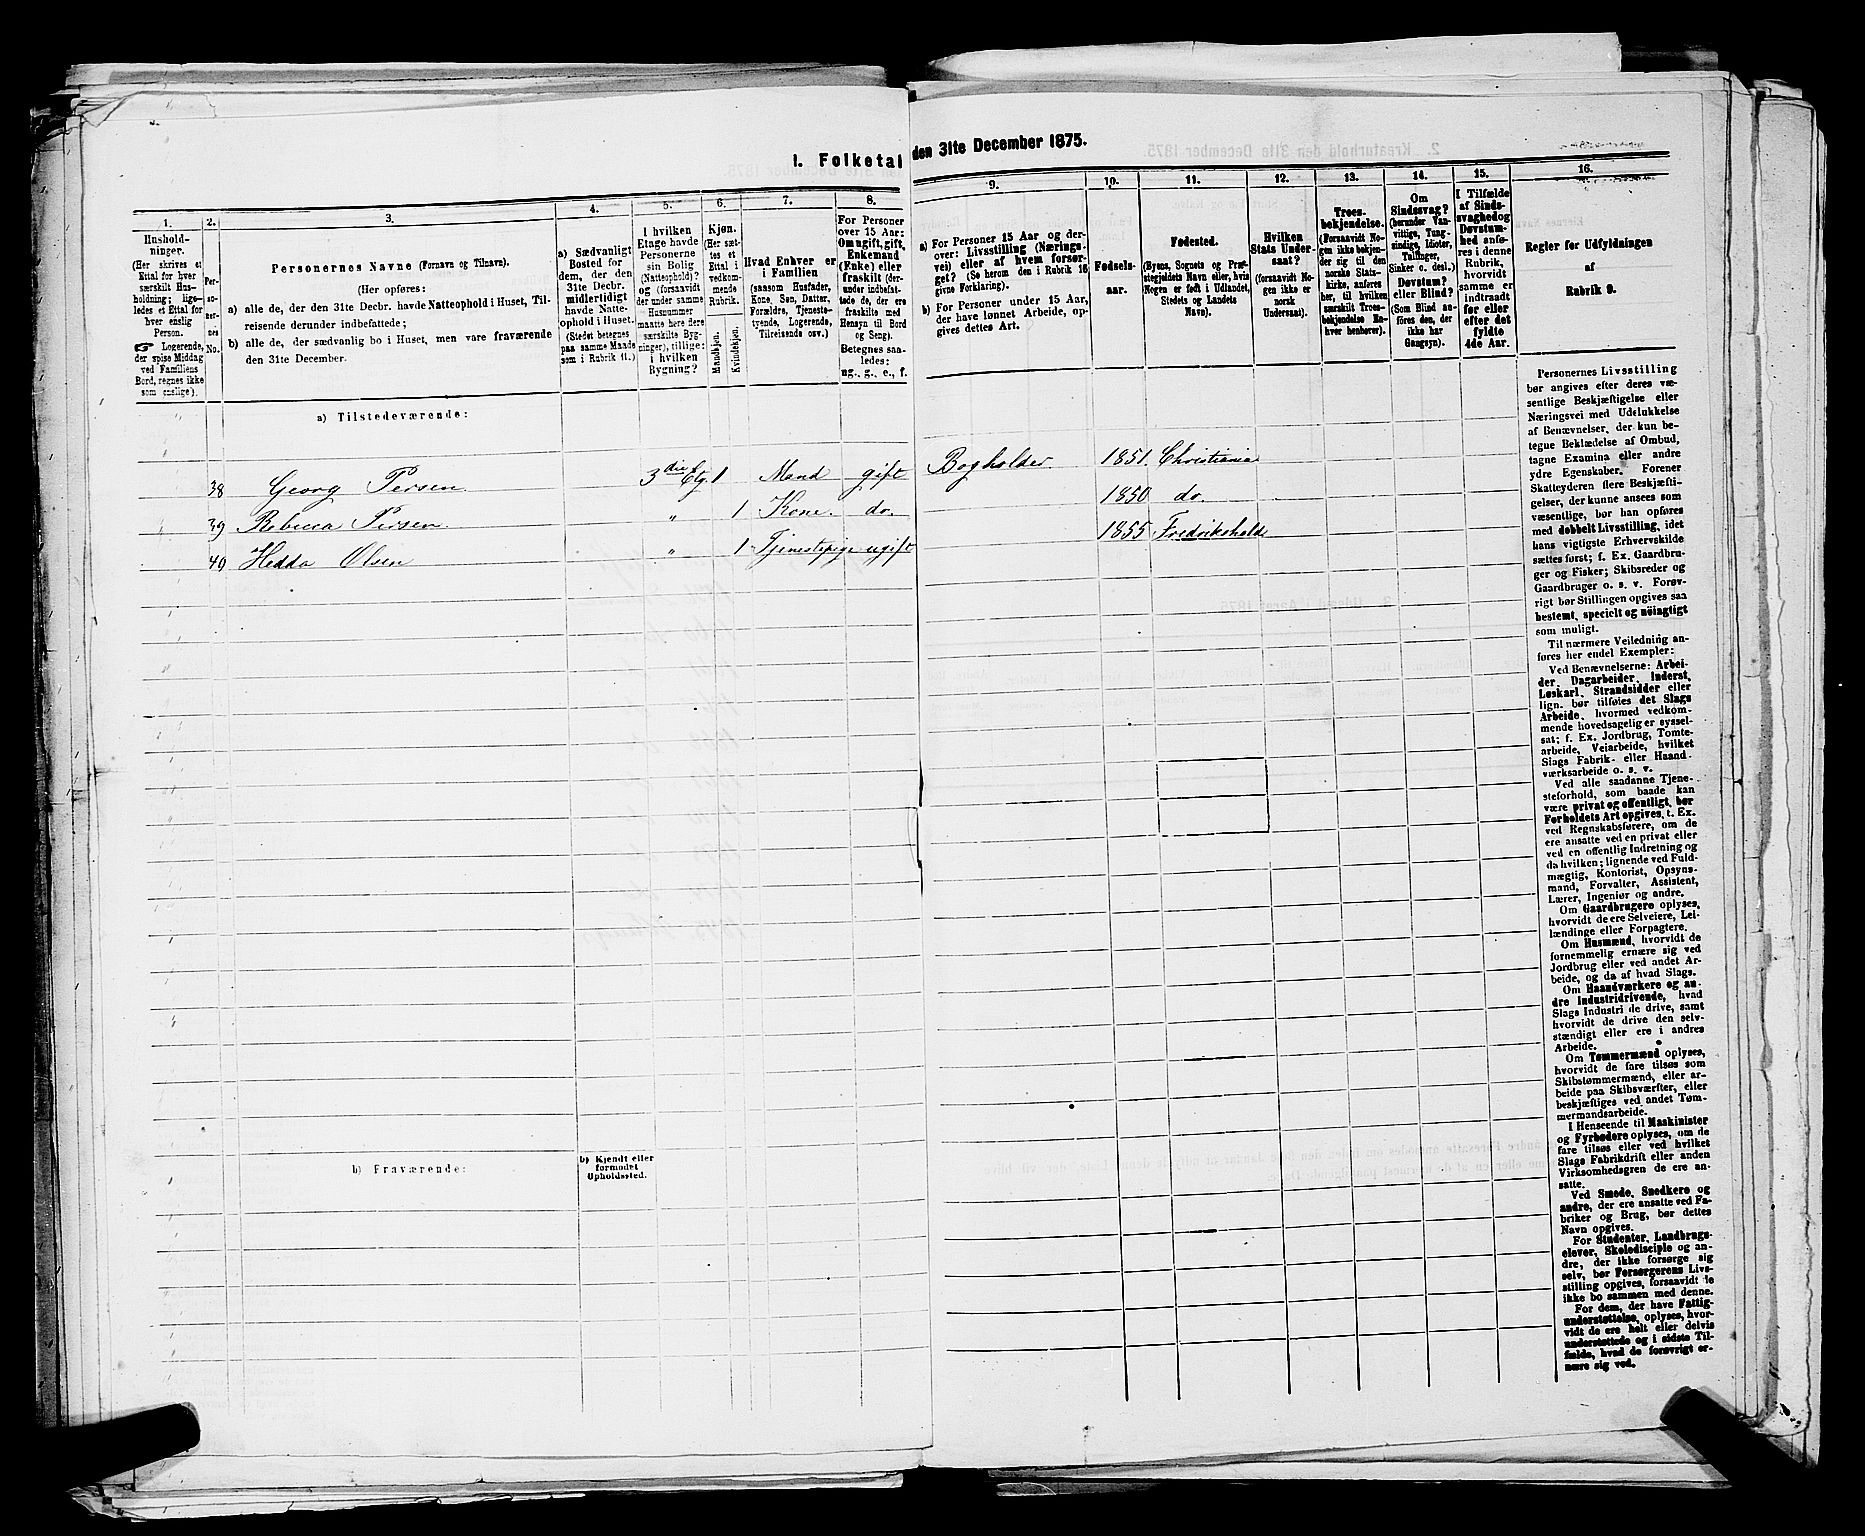 I. Folketal den 31te December 1875.
1.
Husholdninger.
(Her skrives et
Ettal for hver
særskilt Husholdning; ligeledes
et Ettal for
hver enslig
Person.
☞ Logerende,
der spise Middag
ved Familiens
Bord, regnes ikke
som enslige).
2.
Personernes
No.
3.
Personernes Navne (Fornavn og Tilnavn).
(Her opføres:
a) alle de, der den 31te Decbr. havde Natteophold i Huset, Tilreisende derunder indbefattede;
b) alle de, der sædvanlig bo i Huset, men vare fraværende
den 31te December.
4.
a) Sædvanligt
Bosted for
dem, der den
31te Decbr.
midlertidigt
havde Natteophold i Huset.
(Stedet betegnes
paa samme Maade
som i Rubrik 11.)
5.
I hvilken
Etage havde
Personerne
sin Bolig
(Natteophold)?
og (forsaavidt
der under samme
Husnummer
maatte høre flere
særskilte Bygninger), tillige:
i hvilken
Bygning?
6.
Kjøn.
(Her sættes et
Ettal i
vedkommende
Rubrik.
Mandkjøn.
Kvindekjøn.
7.
Hvad Enhver er
i Familien
(saasom Husfader,
Kone, Søn, Datter,
Forældre, Tjenestetyende, Logerende,
Tilreisende osv.)
8.
For Personer
over 15 Aar:
Om ugift, gift,
Enkemand
(Enke) eller
fraskilt (derunder indbefattede de, der ere
fraskilte med
Hensyn til Bord
og Seng).
Betegnes saaledes:
ug., g., e., f.
9.
a) For Personer 15 Aar og derover: Livsstilling (Næringsvei) eller af hvem forsørget? (Se herom den i Rubrik 16
givne Forklaring).
b) For Personer under 15 Aar,
der have lønnet Arbeide, opgives dettes Art.
10.
Fødselsaar.
11.
Fødested.
(Byens, Sognets og Præstegjeldets Navn eller, hvis
Nogen er født i Udlandet,
Stedets og Landets
Navn).
12.
Hvilken
Stats Undersaat?
(forsaavidt Nogen ikke er
norsk
Undersaat).
13.
Troesbekjendelse.
(Forsaavidt Nogen ikke bekjender sig til den
norske Statskirke, anføres
her, til hvilken
særskilt Troesbekjendelse Enhver henhører).
14.
Om
Sindssvag?
(herunder Vanvittige, Tungsindige, Idioter,
Tullinger,
Sinker o. desl.)
Døvstum?
eller Blind?
(Som Blind anføres den, der
ikke har
Gangsyn).
15.
I Tilfælde
af Sindssvaghed og
Døvstumhed anføres i denne
Rubrik,
hvorvidt
samme er
indtraadt
før eller
efter det
fyldte
4de Aar.
16.
Regler for Udfyldningen
af
Rubrik 9.
a) Tilstedeværende:
38 Georg Persen 3die Etg. 1 Mand gift Bogholder 1851. Christiania
39 Rebecca Persen. „ 1 Kone. do. 1850 do.
40 Hedda Olsen „ 1 Tjenestepige ugift 1855 Fredrikshald
b) Fraværende:
b) Kjendt eller
formodet
Opholdssted.
Personernes Livsstilling
bør angives efter deres væsentlige Beskjæftigelse eller
Næringsvei med Udelukkelse
af Benævnelser, der kun betegne Beklædelse af Ombud,
tagne Examina eller andre
ydre Egenskaber. Forener
Skatteyderen flere Beskjæftigelser, der kunne ansees som
væsentlige, bør han opføres
med dobbelt Livsstilling, idet
hans vigtigste Erhvervskilde
sættes først; f. Ex. Gaardbruger og Fisker; Skibsreder og
Gaardbruger o. s. v. Forøvrigt bør Stillingen opgives saa
bestemt, specielt og nøiagtigt
som muligt.
Til nærmere Veiledning anføres her endel Exempler:
Ved Benævnelserne: Arbeider, Dagarbeider, Inderst,
Løskarl, Strandsidder eller
lign. bør tilføies det Slags
Arbeide, hvormed vedkommende hovedsagelig er sysselsat; f. Ex. Jordbrug, Tomtearbeide, Veiarbeide, hvilket
Slags Fabrik- eller Haandværksarbeide o. s. v.
Ved alle saadanne Tjenesteforhold, som baade kan
være privat og offentligt, bør
Forholdets Art opgives, t. Ex.
ved Regnskabsførere, om de
ere ansatte ved en privat eller
ved en offentlig Indretning og
da hvilken; lignende ved Fuldmægtig, Kontorist, Opsynsmand, Forvalter, Assistent,
Lærer, Ingeniør og andre.
Om Gaardbrugere oplyses,
hvorvidt de ere Selveiere, Leilændinge eller Forpagtere.
Om Husmænd, hvorvidt de
fornemmelig ernære sig ved
Jordbrug eller ved andet Arbeide, og da af hvad Slags.
Om Haandværkere og andre Industridrivende, hvad
Slags Industri de drive, samt
hvorvidt de drive den selvstændigt eller ere i andres
Arbeide.
Om Tømmermænd oplyses,
hvorvidt de fare tilsøs som
Skibstømmermænd, eller arbeide paa Skibsværfter, eller
beskjæftiges ved andet Tømmermandsarbeide.
I Henseende til Maskinister
og Fyrbødere oplyses, om de
fare tilsøs eller ved hvilket
Slags Fabrikdrift eller anden
Virksomhedsgren de ere ansatte.
Ved Smede, Snedkere og
andre, der ere ansatte ved Fabriker og Brug, bør dettes
Navn opgives.
For Studenter, Landbrugselever, Skoledisciple og andre, der ikke forsørge sig
selv, bør Forsørgerens Livsstilling opgives, forsaavidt de
ikke bo sammen med denne.
For dem, der have Fattigunderstøttelse, oplyses, hvorvidt de ere helt eller delvis
understøttede og i sidste Tilfælde, hvad de forøvrigt ernære sig ved.